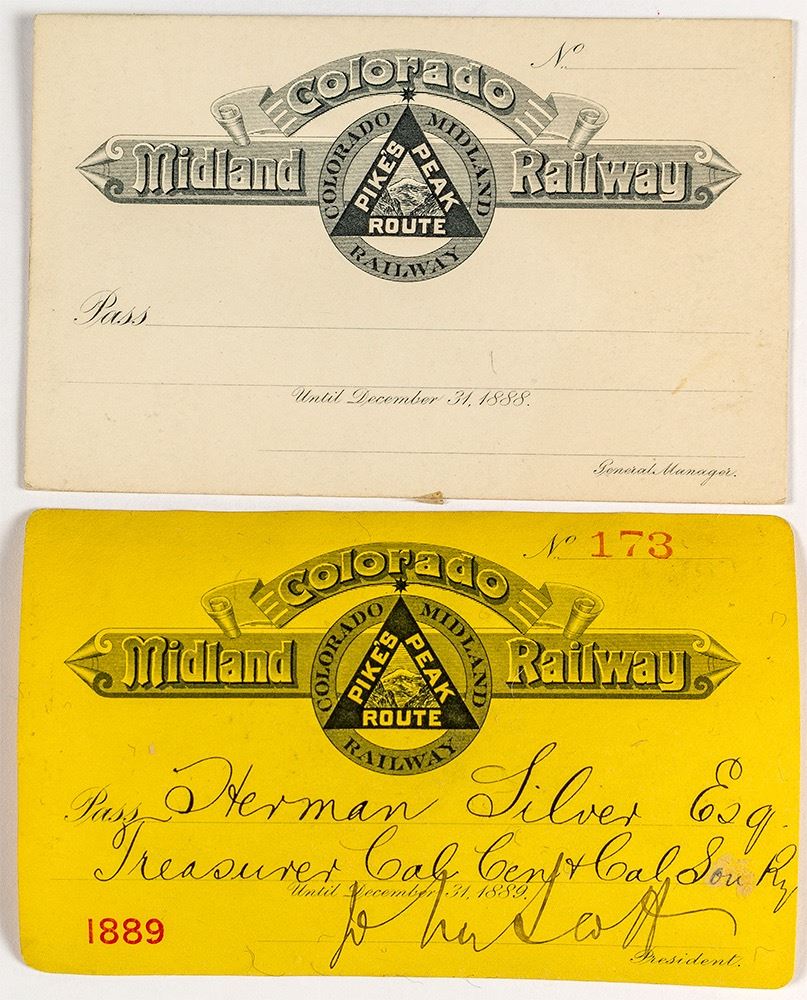 Nº
Colorado
Midland Railway
COLORADO MIDLAND
PIKE'S PEAK
ROUTE
RAILWAY
Pass
Until December 31, 1888.
General Manager.
Nº 173
Colorado
Midland Railway
COLORADO MIDLAND
PIKE'S PEAK
ROUTE
RAILWAY
Pass Herman Silver Esq.
Treasurer Cal Cent & Cal Sou Ry
Until December 31, 1889.
1889
Jno Scott
President.